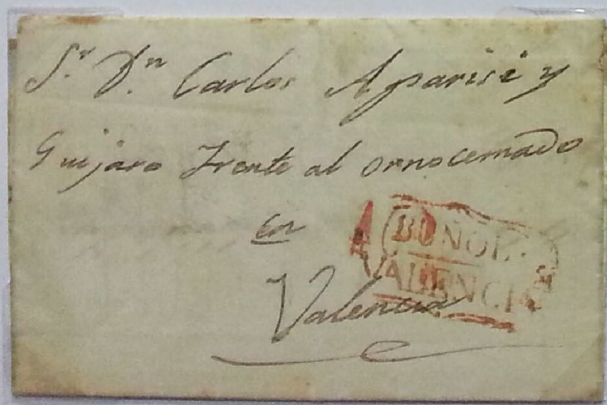 Sr. Dn. Carlos Aparisi y
Guijaro Frente al ornocerrado
en
Valencia
BUÑOL.
VALENCIA